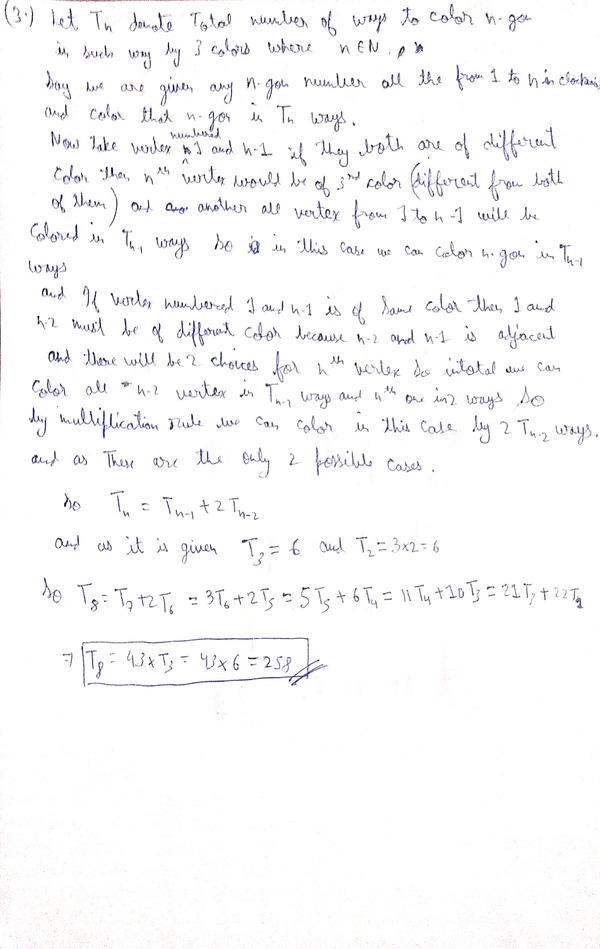 (3.) Let Tn denote Total number of ways to color n-gon
in such way by 3 colors where n∈N.
Say we are given any n-gon number all the from 1 to n in clockwise
and color that n-gon is Tn ways.
Now take vertex numbered 1 and n-1 if they both are of different
color then nth vertex would be of 3rd color (different from both
of them) and another all vertex from 1 to n-1 will be
colored in Tn-1 ways so in this case we can color n-gon in Tn-1
ways
and If vertex numbered 1 and n-1 is of same color then 1 and
n-2 must be of different color because n-2 and n-1 is adjacent
and there will be 2 choices for nth vertex so in total we can
color all n-2 vertex in Tn-2 ways and nth one in 2 ways so
by multiplication rule we can color in this case by 2Tn-2 ways.
and as These are the only 2 possible cases.
So Tn = Tn-1 + 2Tn-2
and as it is given T3 = 6 and T2 = 3×2 = 6
So T8 = T7 + 2T6 = 3T6 + 2T5 = 5T5 + 6T4 = 11T4 + 10T3 = 21T3 + 22T2
⇒ T8 = 43×T3 = 43×6 = 258